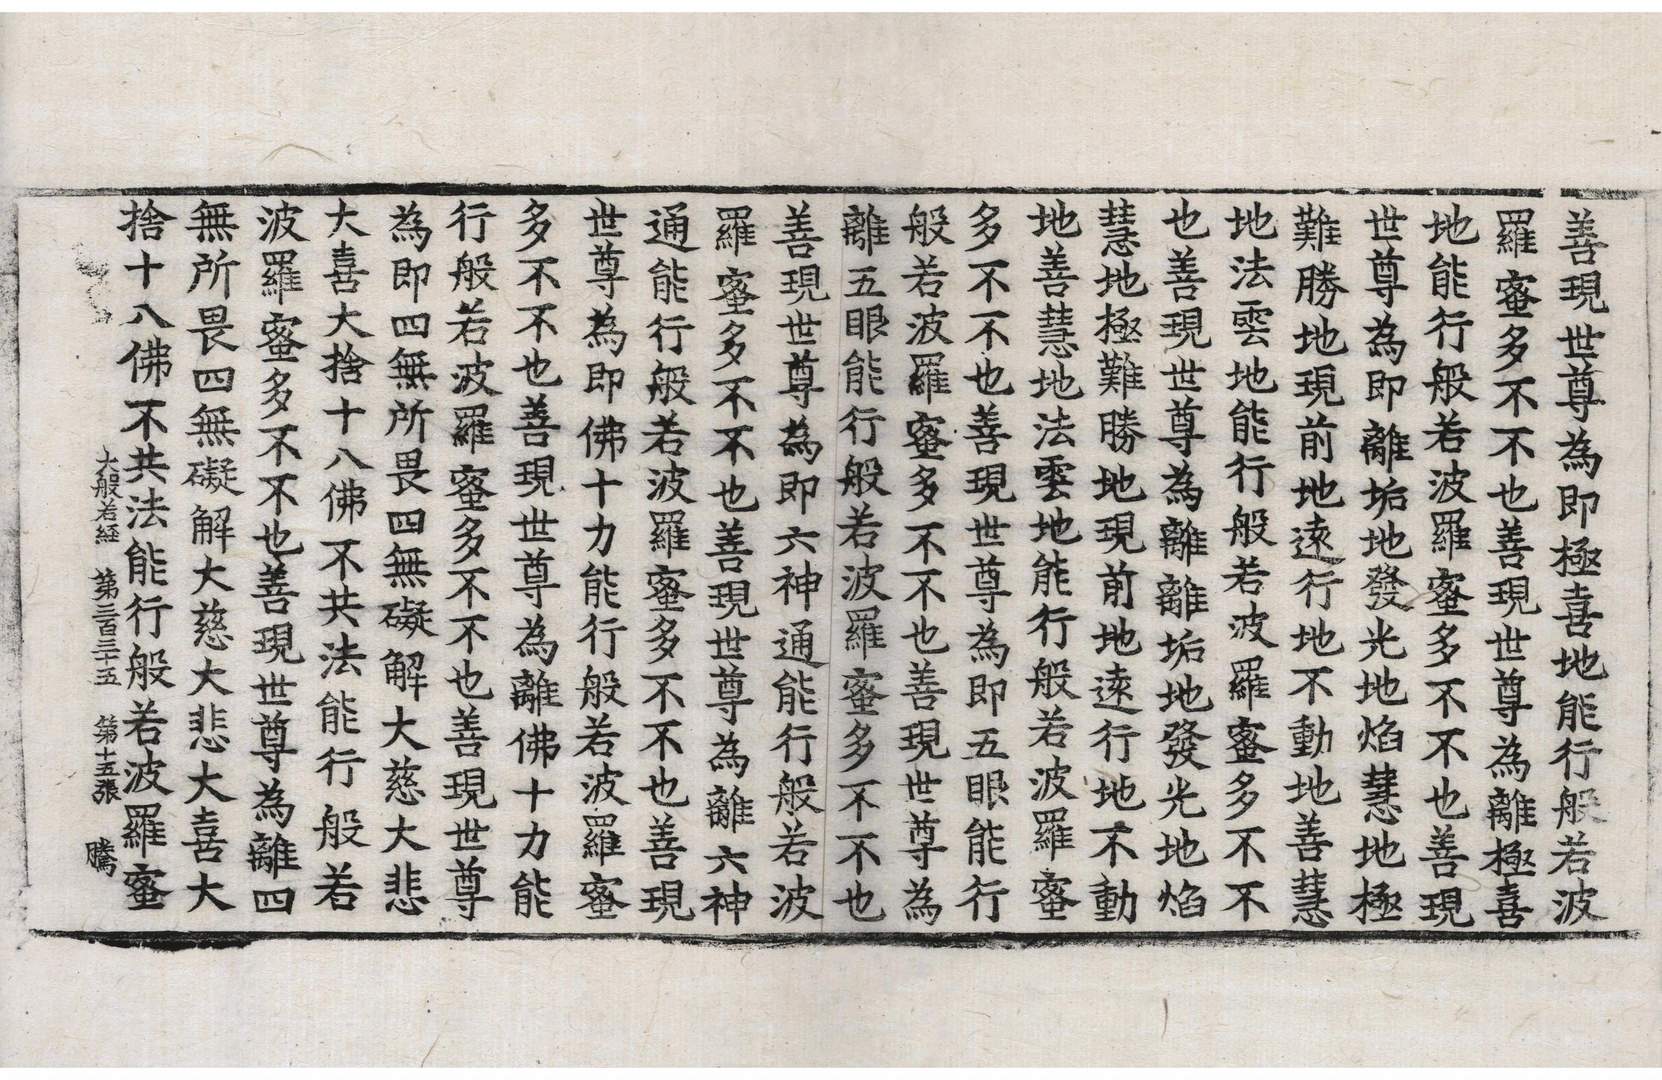 善現世尊為即極喜地能行般若波
羅蜜多不不也善現世尊為離極喜
地能行般若波羅蜜多不不也善現
世尊為即離垢地發光地焰慧地極
難勝地現前地遠行地不動地善慧
地法雲地能行般若波羅蜜多不不
也善現世尊為離離垢地發光地焰
慧地極難勝地現前地遠行地不動
地善慧地法雲地能行般若波羅蜜
多不不也善現世尊為即五眼能行
般若波羅蜜多不不也善現世尊為
離五眼能行般若波羅蜜多不不也
善現世尊為即六神通能行般若波
羅蜜多不不也善現世尊為離六神
通能行般若波羅蜜多不不也善現
世尊為即佛十力能行般若波羅蜜
多不不也善現世尊為離佛十力能
行般若波羅蜜多不不也善現世尊
為即四無所畏四無礙解大慈大悲
大喜大捨十八佛不共法能行般若
波羅蜜多不不也善現世尊為離四
無所畏四無礙解大慈大悲大喜大
捨十八佛不共法能行般若波羅蜜
大般若経 第三百三十五 第十五張 騰